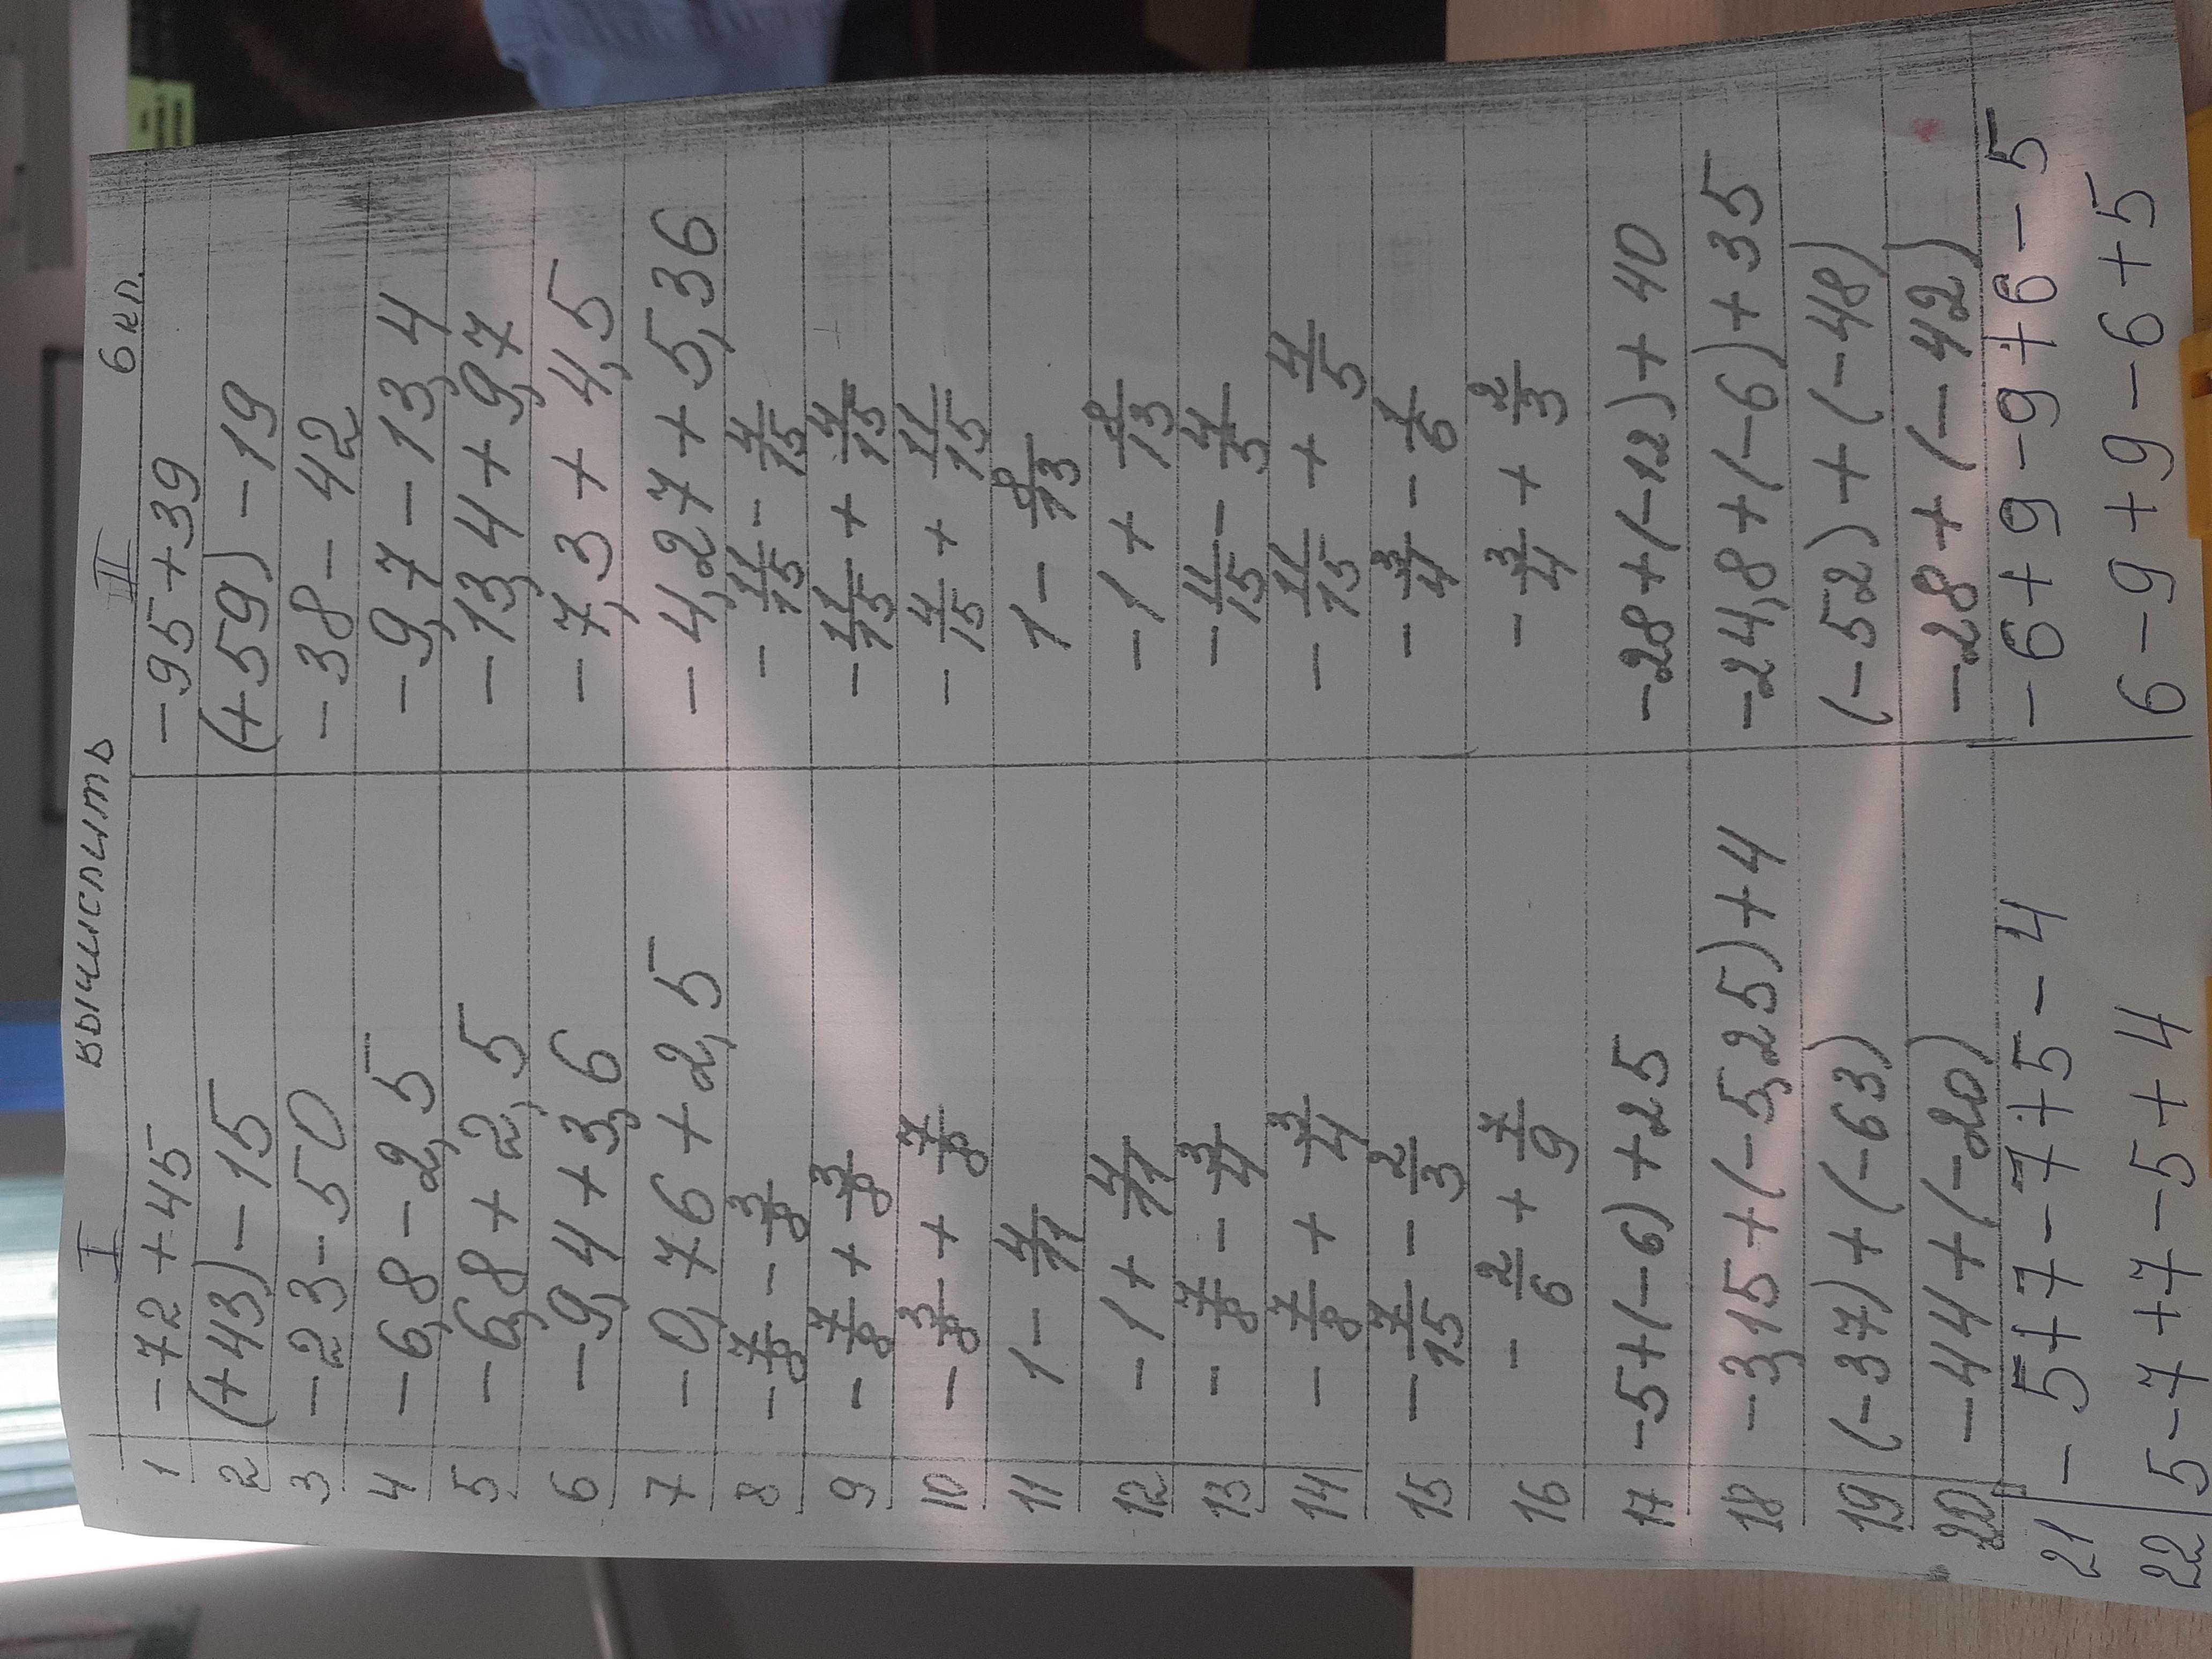 вычислить 6 кл.
I II
1 -72+45 -95+39
2 (+43)-15 (+59)-19
3 -23-50 -38-42
4 -6,8-2,5 -9,7-13,4
5 -6,8+2,5 -13,4+9,7
6 -9,4+3,6 -7,3+4,5
7 -0,76+2,5 -4,27+5,36
8 -7/8-3/8 -11/15-4/15
9 -7/8+3/8 -11/15+4/15
10 -3/8+7/8 -4/15+11/15
11 1-4/11 1-9/13
12 -1+4/11 -1+9/13
13 -7/8-3/4 -11/15-4/5
14 -7/8+3/4 -11/15+4/5
15 -7/15-2/3 -3/4-1/6
16 -2/6+7/9 -3/4+2/3
17 -5+(-6)+25 -28+(-12)+40
18 -3,15+(-5,25)+4 -24,8+(-6)+35
19 (-37)+(-63) (-52)+(-48)
20 -44+(-20) -28+(-42)
21 -5+7-7+5-4 -6+9-9+6-5
22 5-7+7-5+4 6-9+9-6+5